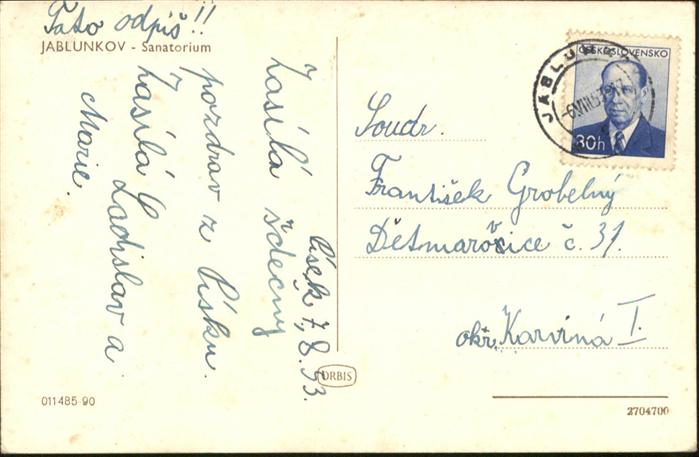 Tato odpiš!!
JABLUNKOV - Sanatorium
Písek 7,8.53.
Zasílá šdecny
pozdrav z Písku.
Zasílá Ladislav a
Marie.
ORBIS
011485 90
ČESKOSLOVENSKO
30h
JABLUNK
Soudr.
František Grobelný
Dětmarovice č. 31.
okr. Karviná I.
2704700